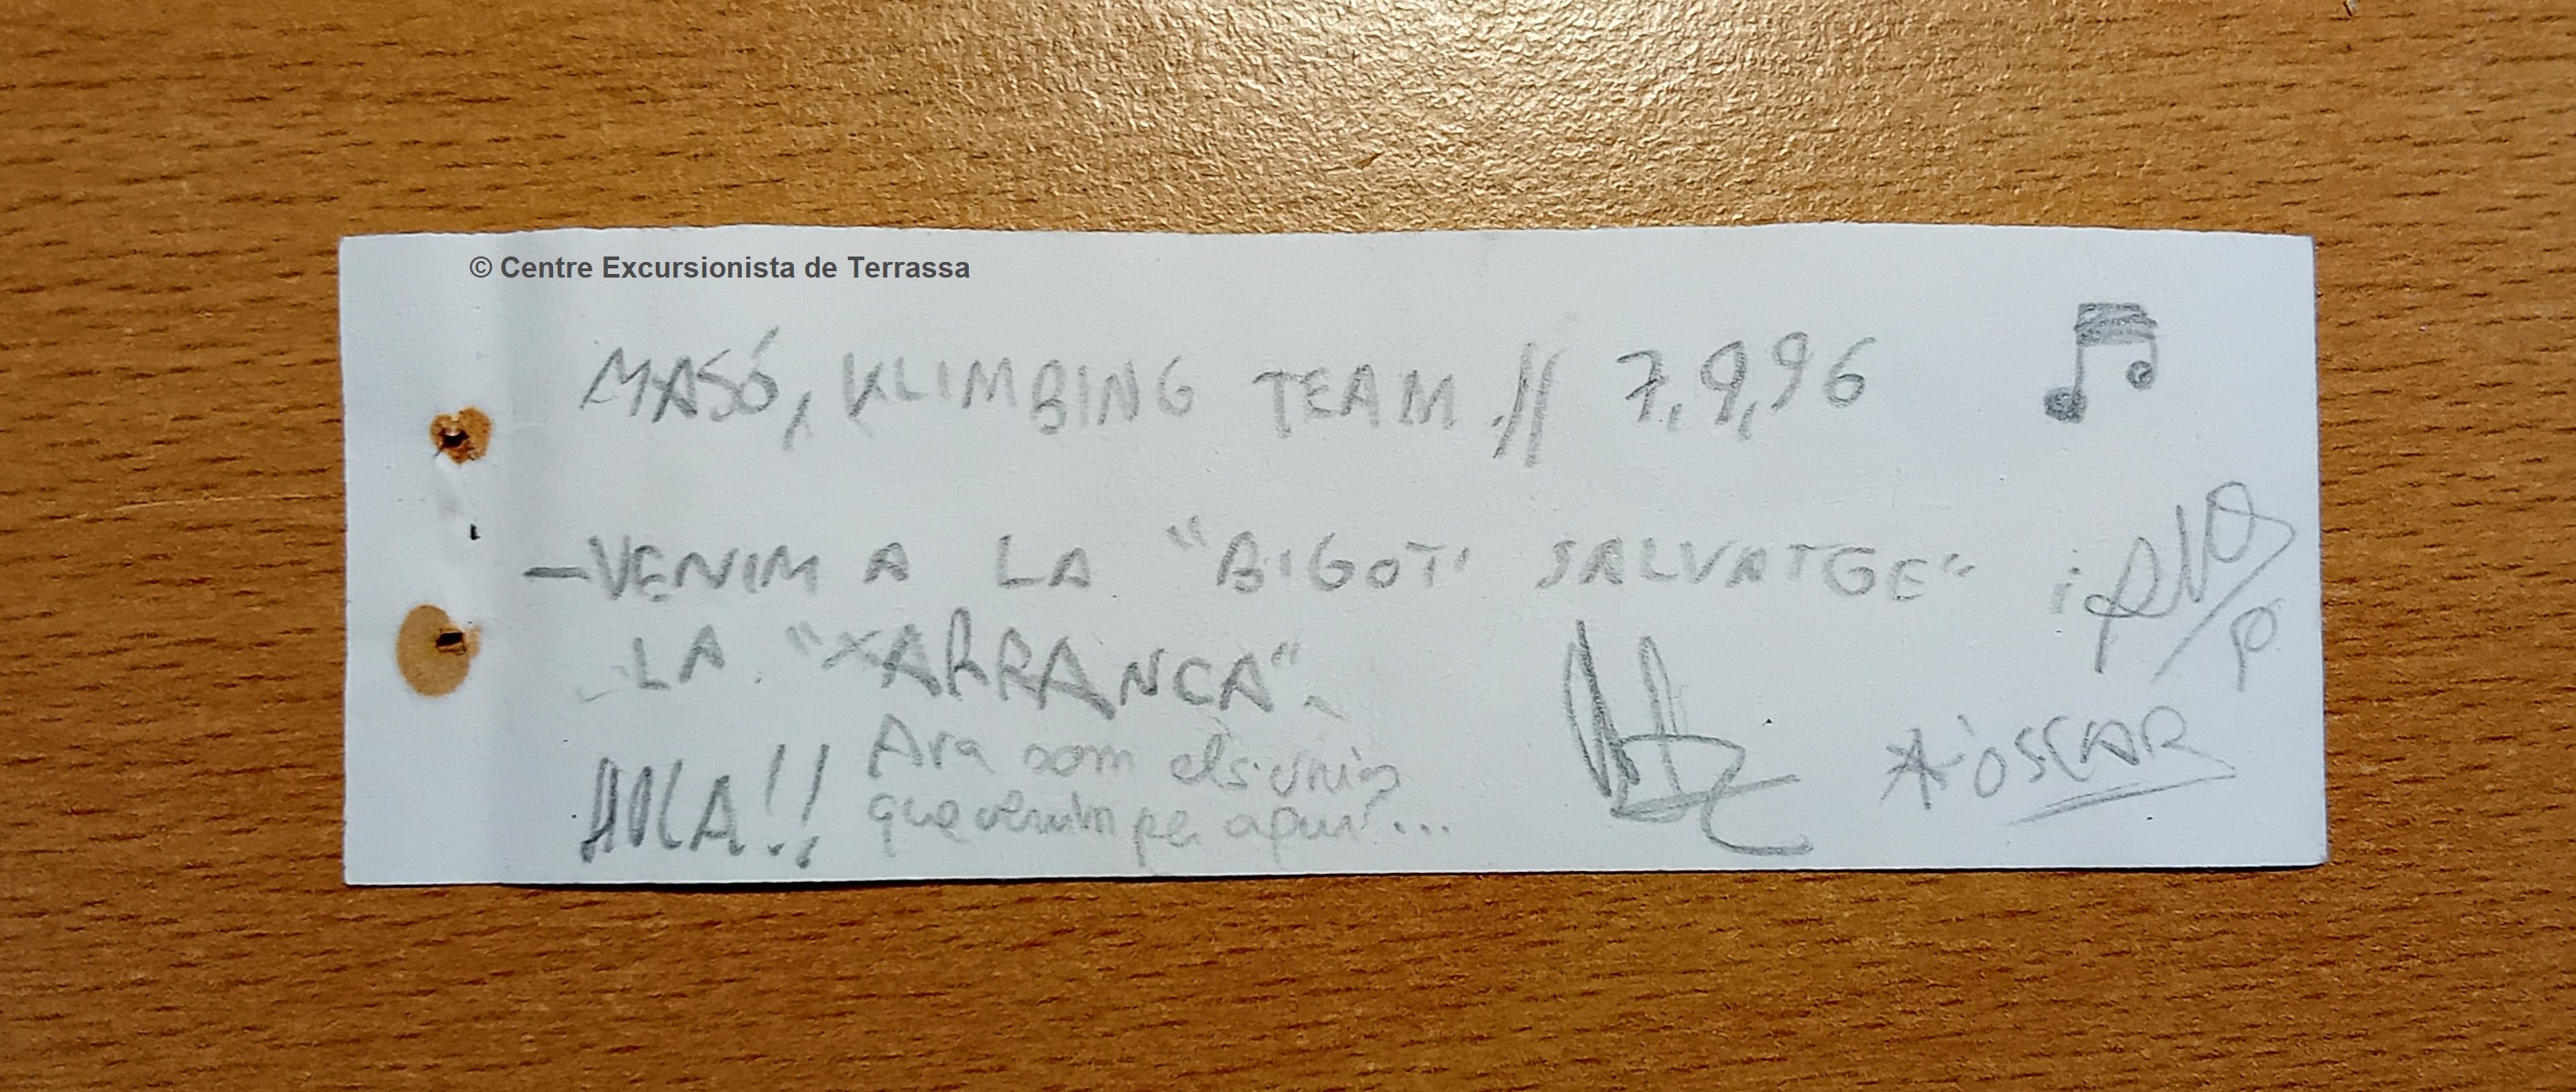 © Centre Excursionista de Terrassa
MASÓ, KLIMBING TEAM // 7,9,96
– VENIM A LA "BIGOTI SALVATGE" i
LA "XARRANCA"
HOLA!! Ara som els únics
que venim per aquí...
ÒSCAR